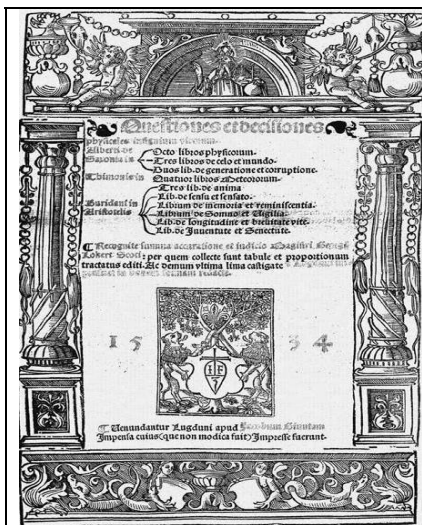 Questiones et decisiones
physicales insignium virorum.
Alberti de Saxonia in
Octo libros physicorum.
Tres libros de celo et mundo.
Duos lib. de generatione et corruptione.
Thimonis in
Quatuor libros Meteororum.
Buridani in Aristotelis
Tres lib. de anima
Lib. de sensu et sensato.
Librum de memoria et reminiscentia.
Librum de Somno et Vigilia.
Lib. de longitudine et brevitate vite.
Lib. de Juventute et Senectute.
Recognite summa accuratione et iudicio Magistri Georgii
Lokert Scoti: per quem collecte sunt tabule et proportionum
tractatus editi. Ac demum ultima lima castigate
1534
I F
Venundantur Lugduni apud Jacobum Giuntam
Impensa cuius (que non modica fuit) Impresse fuerunt.